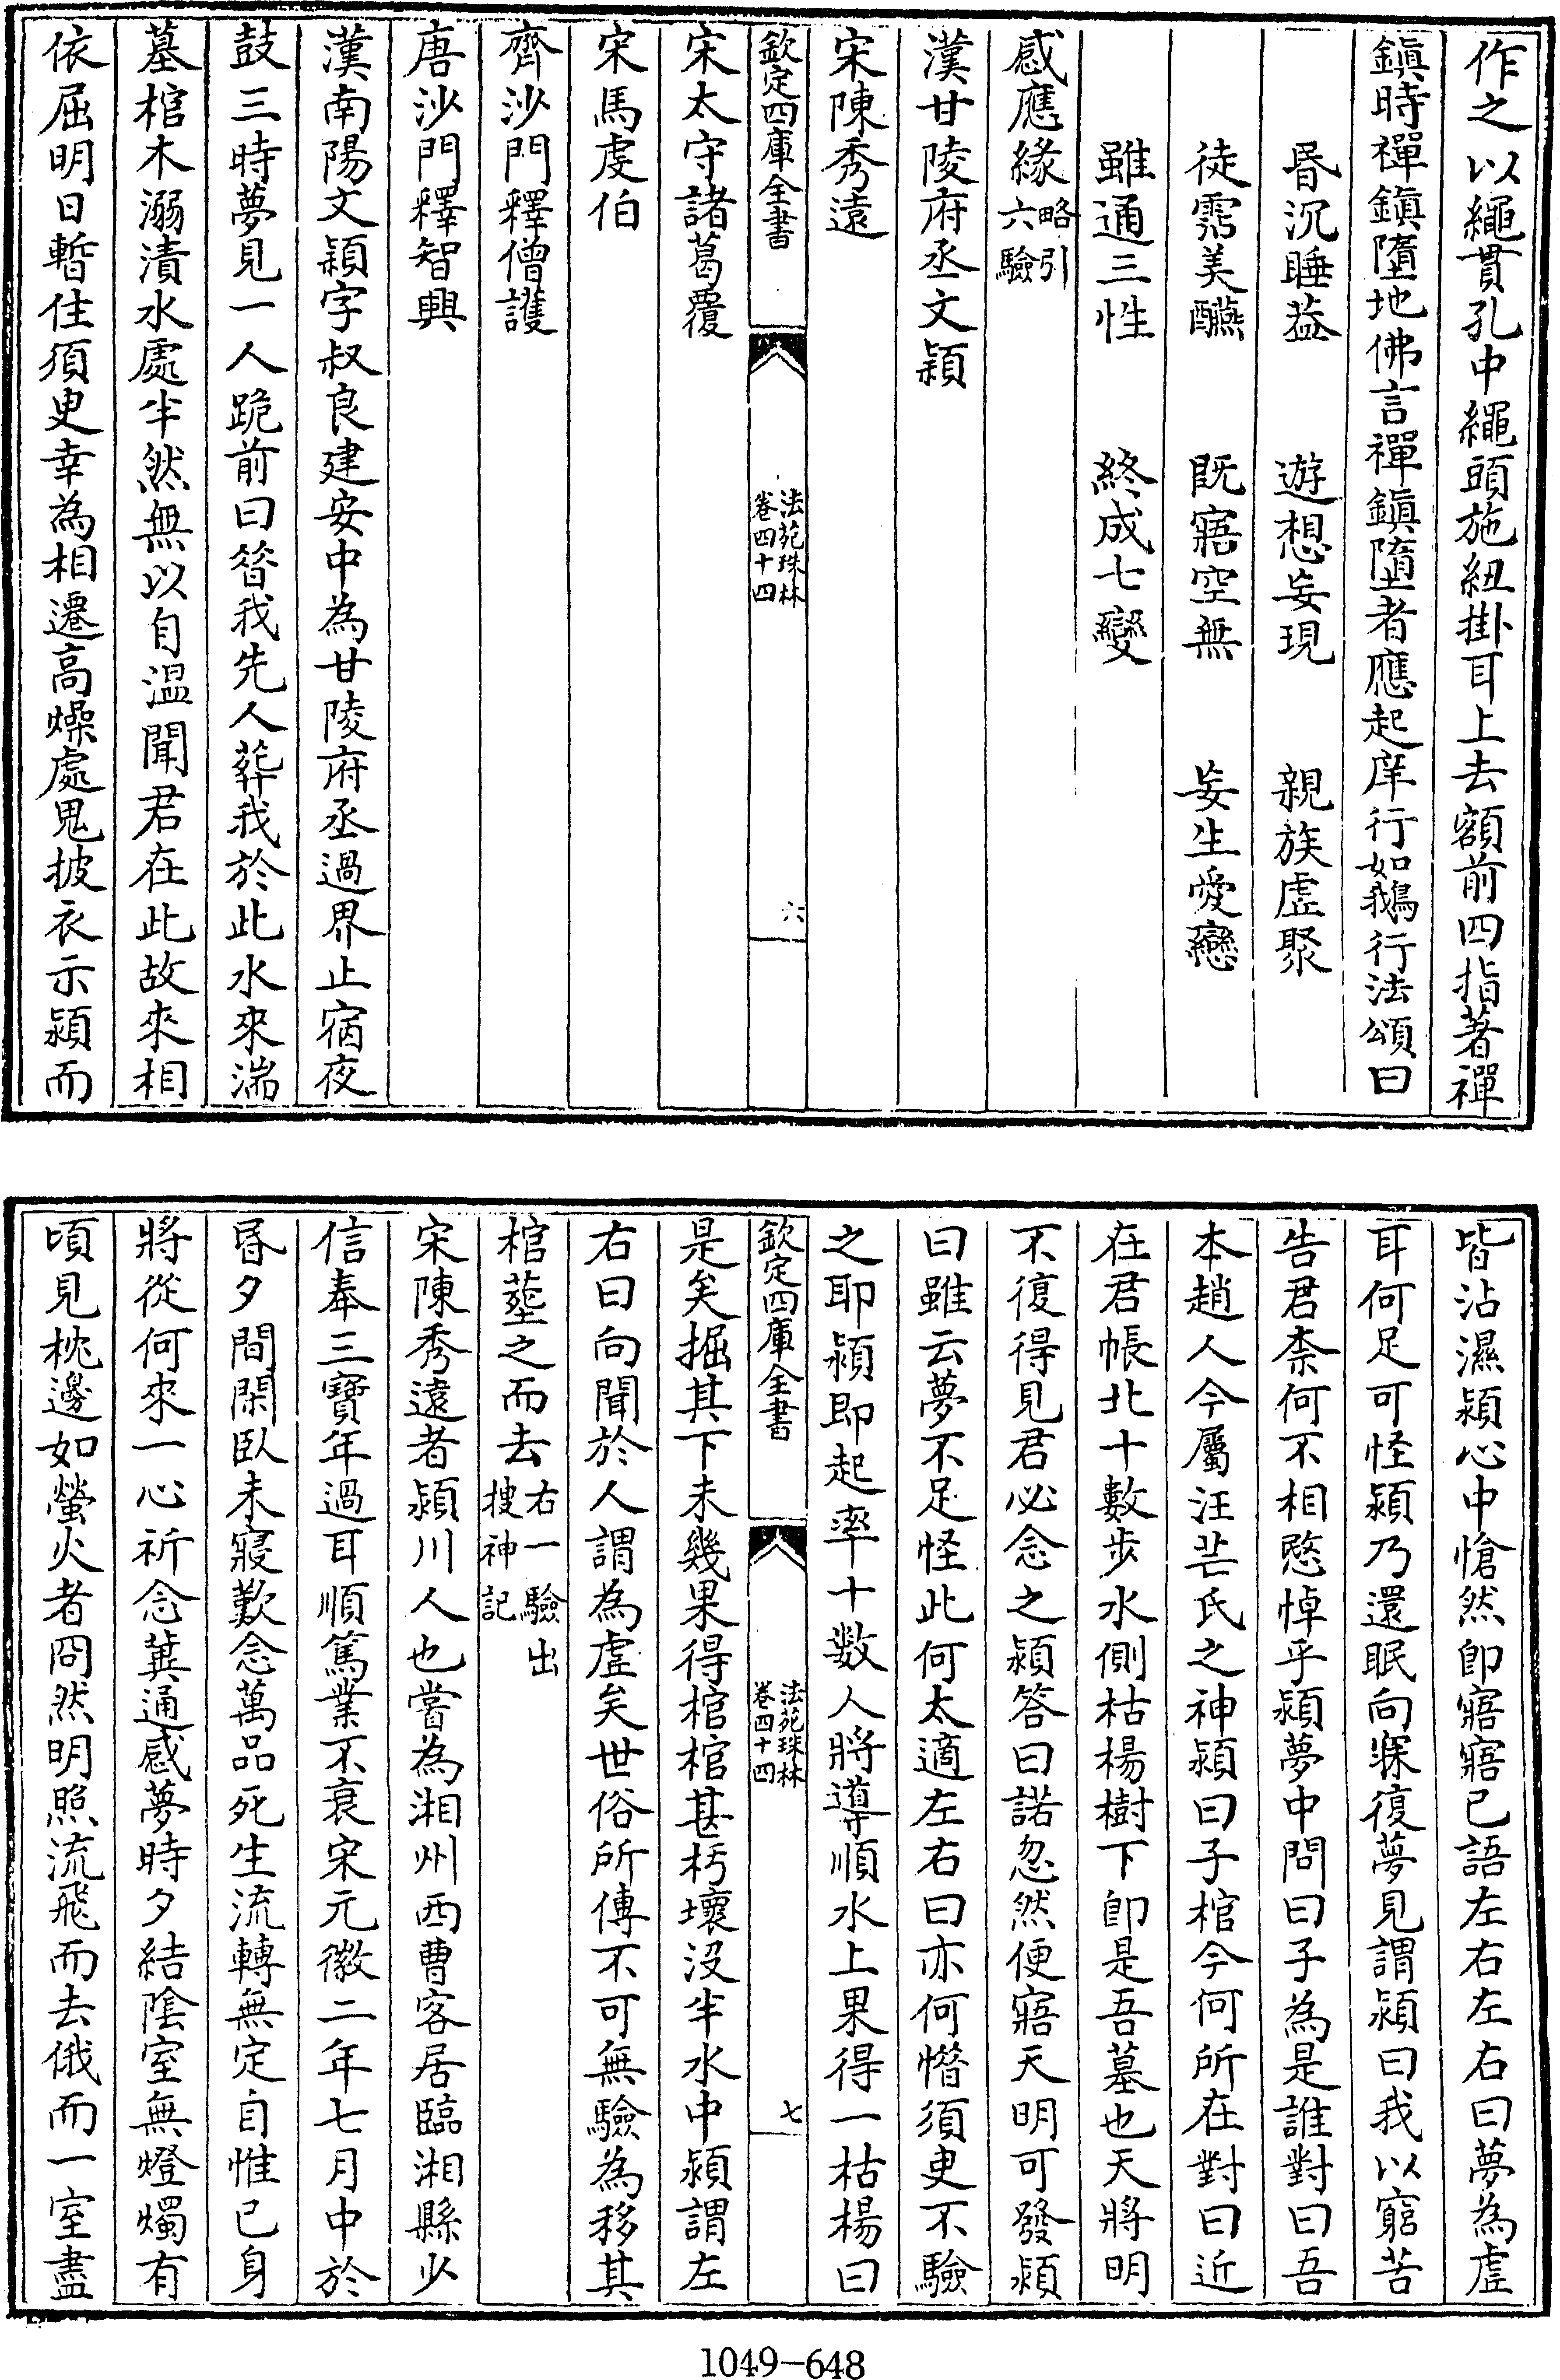 作之以繩貫孔中繩頭施紐掛耳上去額前四指著禪
鎮時禪鎮墮地佛言禪鎮墮者應起庠行如鵝行法頌曰
昬沉睡葢　遊想妄現　親族虛聚
徒霑美醼　既寤空無　妄生愛戀
雖通三性　終成七變
感應緣略引六驗
漢甘陵府丞文頴
宋陳秀遠
欽定四庫全書　法苑珠林卷四十四　六
宋太守諸葛覆
宋馬虔伯
齊沙門釋僧護
唐沙門釋智興
漢南陽文穎字叔良建安中為甘陵府丞過界止宿夜
鼓三時夢見一人跪前曰昝我先人葬我於此水來湍
墓棺木溺漬水處半然無以自溫聞君在此故來相
依屈明日暫住須臾幸為相遷高燥處鬼披衣示潁而
皆沾濕潁心中愴然即寤寤已語左右左右曰夢為虛
耳何足可怪潁乃還眠向寐復夢見謂潁曰我以窮苦
告君柰何不相愍悼乎潁夢中問曰子為是誰對曰吾
本趙人今屬汪芒氏之神潁曰子棺今何所在對曰近
在君帳北十數步水側枯楊樹下即是吾墓也天將明
不復得見君必念之潁答曰諾忽然便寤天明可發潁
曰雖云夢不足怪此何太適左右曰亦何惜須臾不驗
之耶潁即起率十数人將導順水上果得一枯楊曰
欽定四庫全書　法苑珠林卷四十四　七
是矣掘其下未幾果得棺棺甚朽壞沒半水中潁謂左
右曰向聞於人謂為虛矣世俗所傳不可無驗為移其
棺塟之而去右一驗出搜神記
宋陳秀遠者潁川人也嘗為湘州西曹客居臨湘縣少
信奉三寶年過耳順篤業不衰宋元徽二年七月中於
昬夕間閑臥未寢歎念萬品死生流轉無定自惟已身
將從何來一心祈念冀通感夢時夕結陰室無燈燭有
頃見枕邊如螢火者冏然明照流飛而去俄而一室盡
1049-648